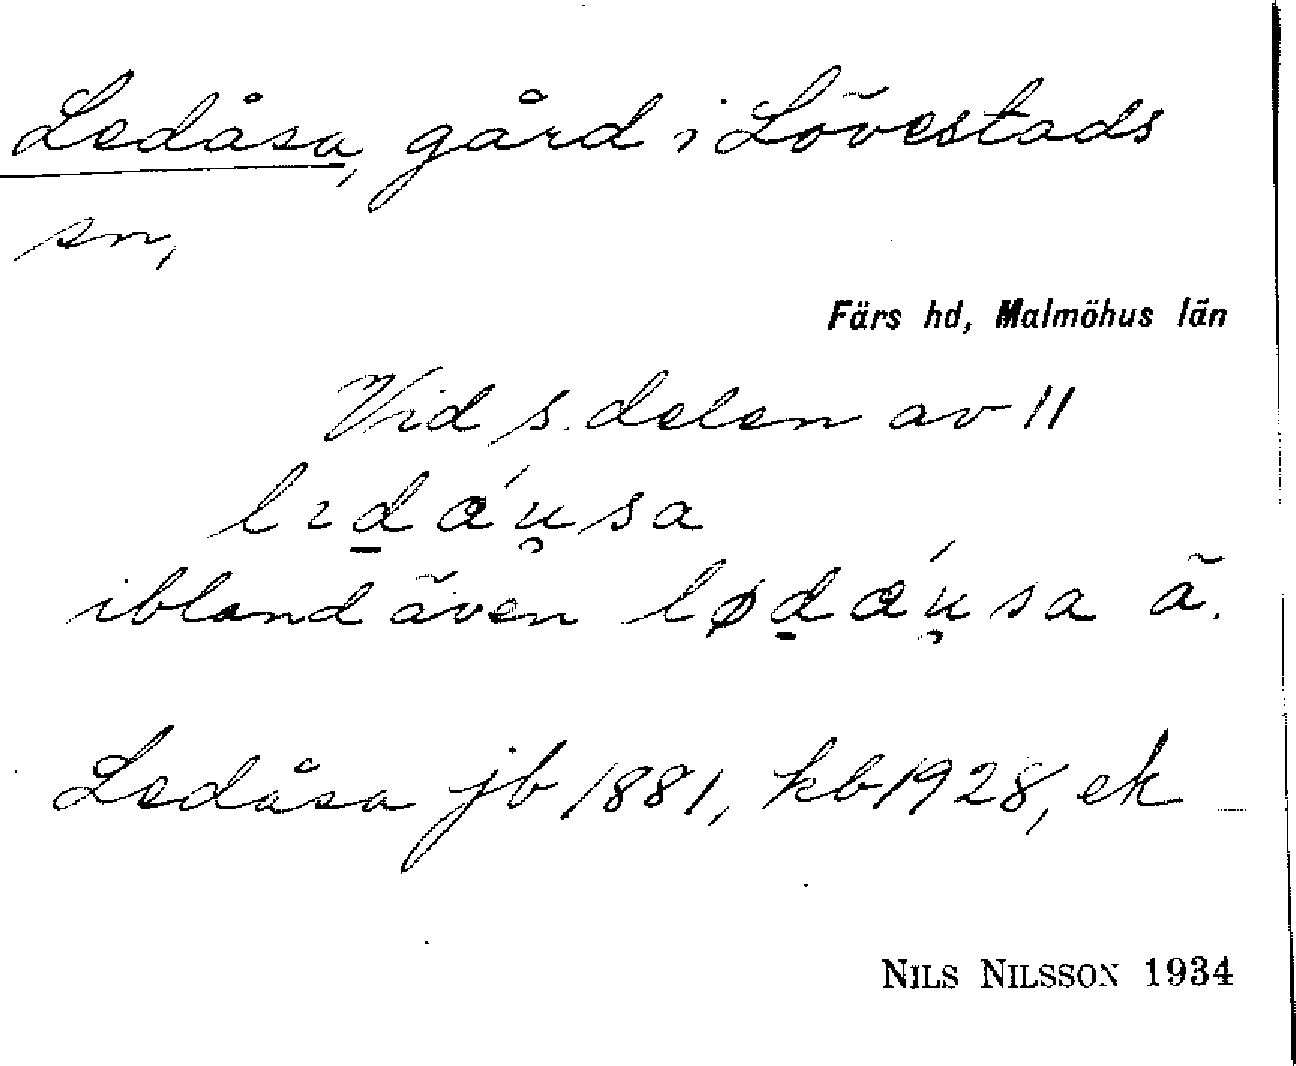 Ledåsa, gård i Lövestads
sn,
Färs hd, Malmöhus län
Vid s. delen av 11
lɿd̲ɑ́u̯sa
ibland även lød̲ɑ́u̯sa ä.
Ledåsa jb 1881, kb 1928, ek
NILS NILSSON 1934